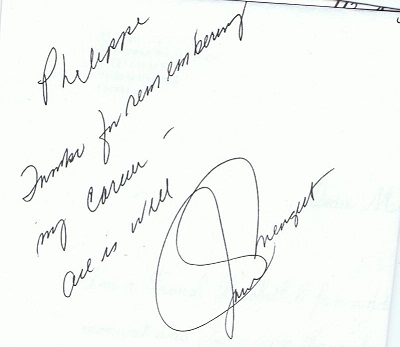 Philippe
Thanks for remembering
my career –
all is well